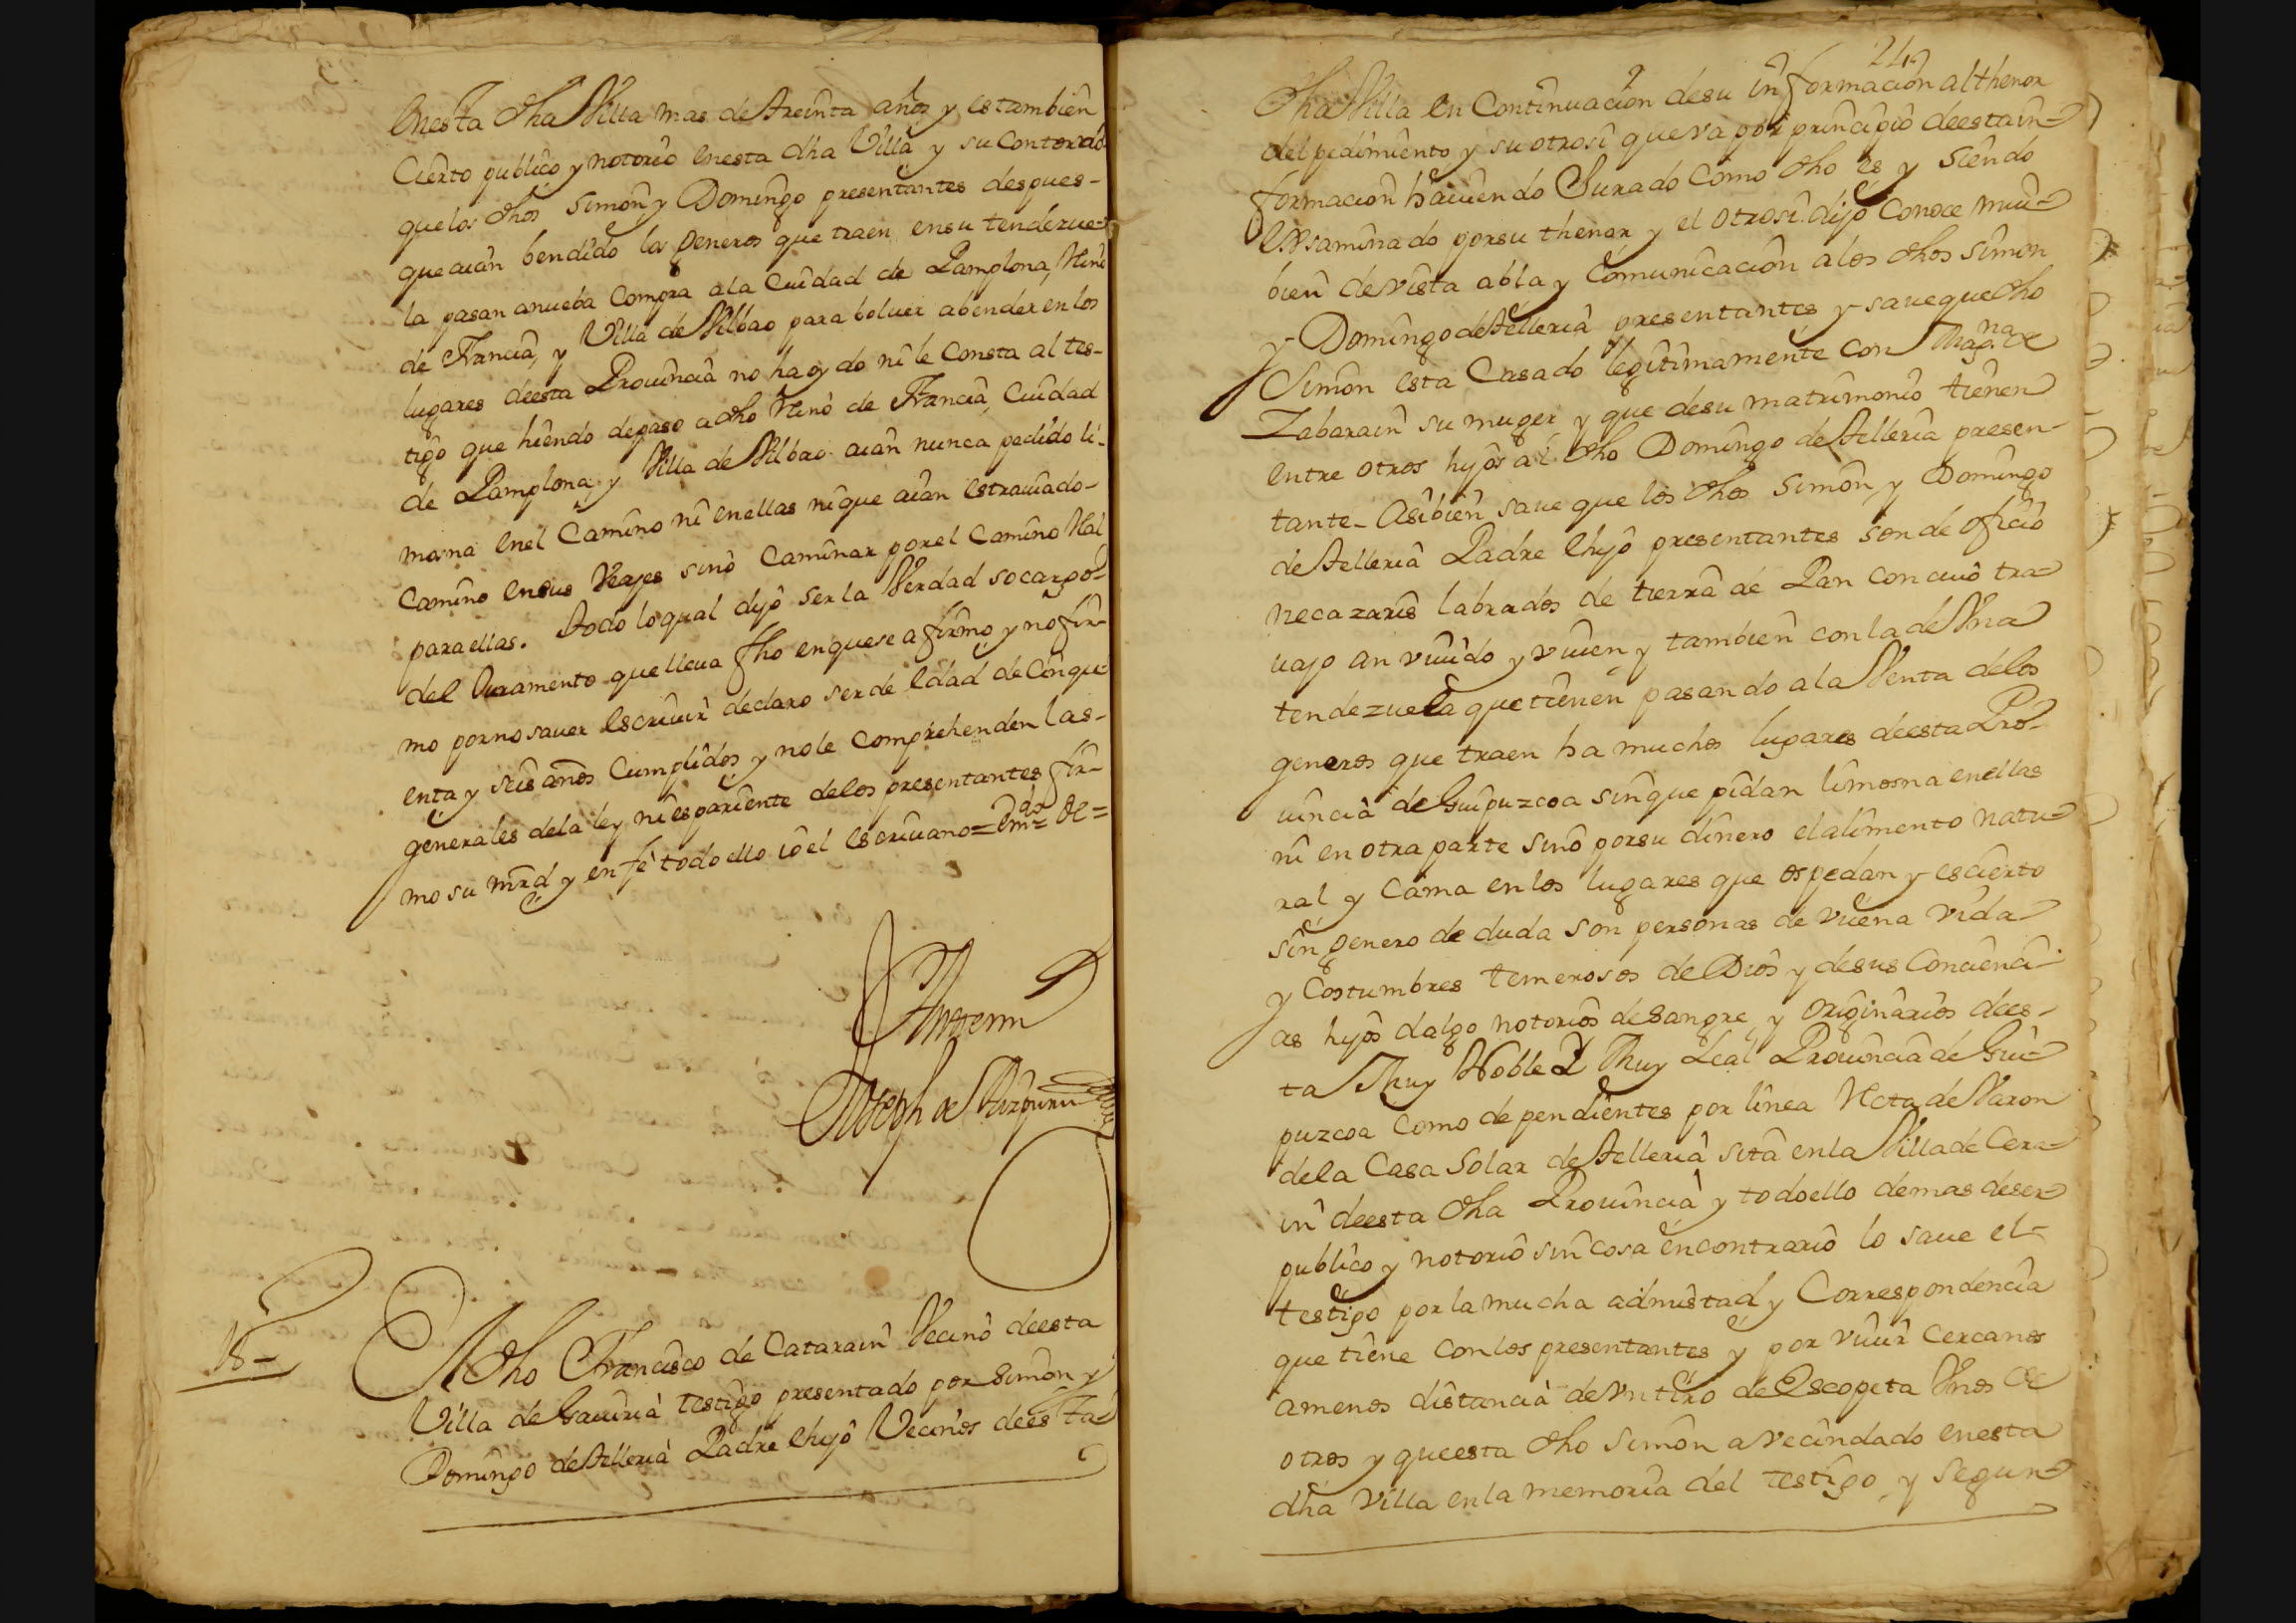 enesta dha Villa mas de treinta años y es tambien
Cierto publico y notorio enesta dha Villa y su Contorno
que los dhos Simon y Domingo presentantes despues-
que aian bendido los generos que traen en su tendezue-
la pasan a nueba Compra ala Ciudad de Pamplona, Reino
de Francia, y Villa de Vilbao para boluer abender en los
lugares deesta Prouincia no ha oydo ni le Consta al tes-
tigo que hiendo de paso a dho Reino de Francia Ciudad
de Pamplona y Villa de Vilbao aian nunca pedido li-
mosna enel Camino ni enellas ni que aian estrauiado-
Camino ensus Viajes sino Caminar por el Camino Rl
para ellas. todo lo qual dijo ser la Verdad so cargo-
del Juramento que lleua fho enquese afirmo y no fir-
mo por no sauer escriuir declaro ser de edad de Cinqu-
enta y seis años Cumplidos y nole Comprehenden las-
generales dela ley ni es pariente delos presentantes fir-
mo su mrd y en fe todo ello io el escriuano=
Ante mi
Joseph de Aizpuru
18-
El dho Francisco de Catarain Vecino deesta
Villa de Gauiria testigo presentado por Simon y
Domingo de telleria Padre ehijo Vecinos deesta
24
dha Villa en Continuacion desu informacion al thenor
del pedimiento y su otrosi que va por principio deesta in-
formacion hauiendo Jurado Como dho es y Siendo
exsaminado por su thenor y el otrosi dijo Conoce mui
bien de vista abla y Comunicacion alos dhos Simon
y Domingo de telleria presentantes y saue que dho
Simon esta Casado legitimamente con Mag.na de
Zabarain su muger y que desu matrimonio tienen
entre otros hijos al dho Domingo de telleria presen-
tante- Asibien saue que los dhos Simon y Domingo
de telleria Padre ehijo presentantes son de oficio
necazaris labrados de tierra de Pan con cuio tra-
uajo an viuido y viuen y tambien con la de Vna
tendezuela que tienen pasando ala Venta delos
generos que traen ha muchos lugares deesta Pro-
uincia de Guipuzcoa sin que pidan limosna enellas
ni en otra parte sino por su dinero el alimento natu-
ral y Cama en los lugares que ospedan y es cierto
sin genero de duda son personas de vuena vida
y Costumbres temerosos de Dios y desus Conciencі-
as hijos dalgo notorios de sangre y originarios dees-
ta Muy Noble Y Muy Leal Prouincia de Gui-
puzcoa Como dependientes por linea Recta de Varon
dela Casa Solar de telleria sita en la Villa de Cera-
in deesta dha Prouincia y todo ello demas deser
publico y notorio sin cosa encontrario lo saue el-
testigo por la mucha admistad y Correspondencia
que tiene con los presentantes y por viuir Cercanos
amenos distancia de vn tiro de Escopeta Vnos de
otros y que esta dho Simon avecindado enesta
dha Villa en la memoria del testigo, y segun